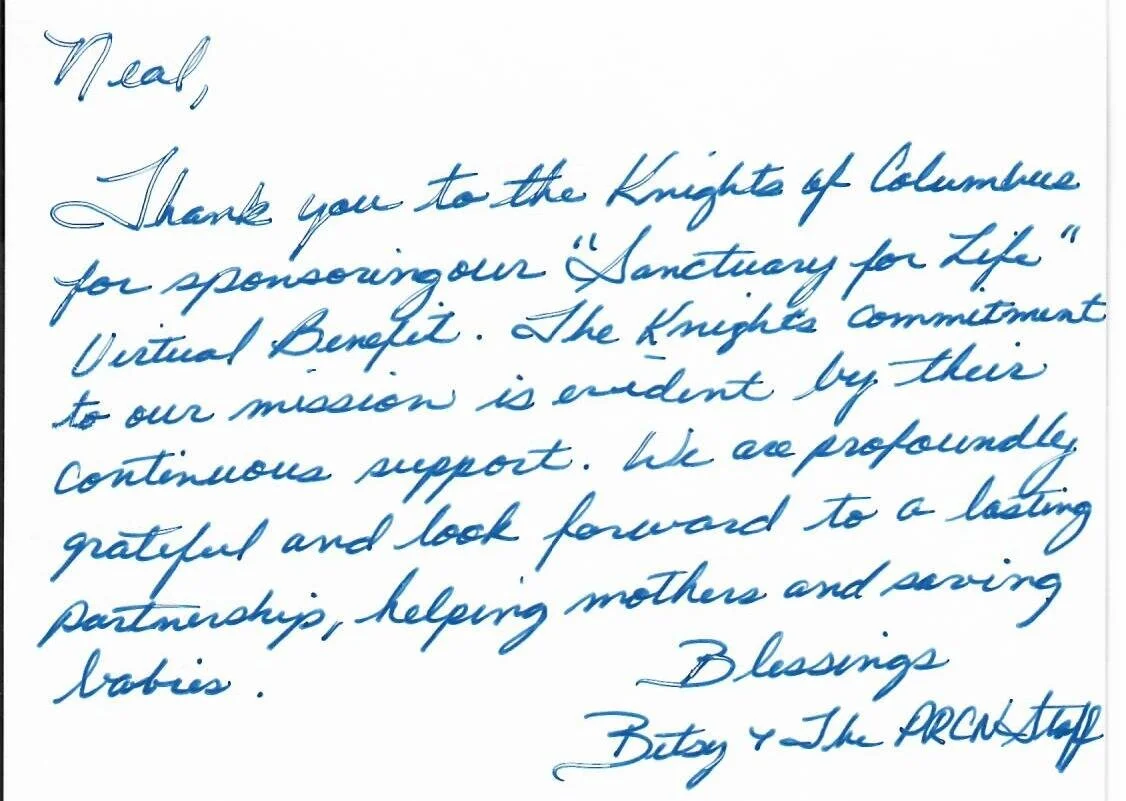 Neal,
Thank you to the Knights of Columbus
for sponsoring our "Sanctuary for Life"
Virtual Benefit. The Knights commitment
to our mission is evident by their
continuous support. We are profoundly
grateful and look forward to a lasting
partnership, helping mothers and saving
babies.
Blessings
Betsy & The PRCN Staff